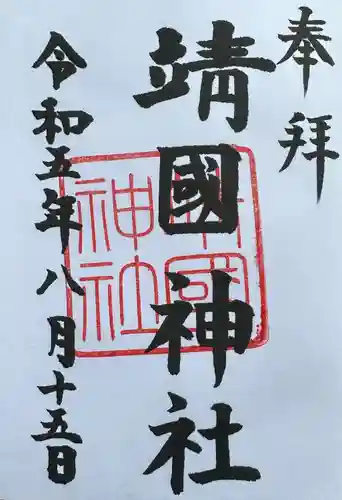 奉拝
靖國神社
令和五年八月十五日
靖國
神社